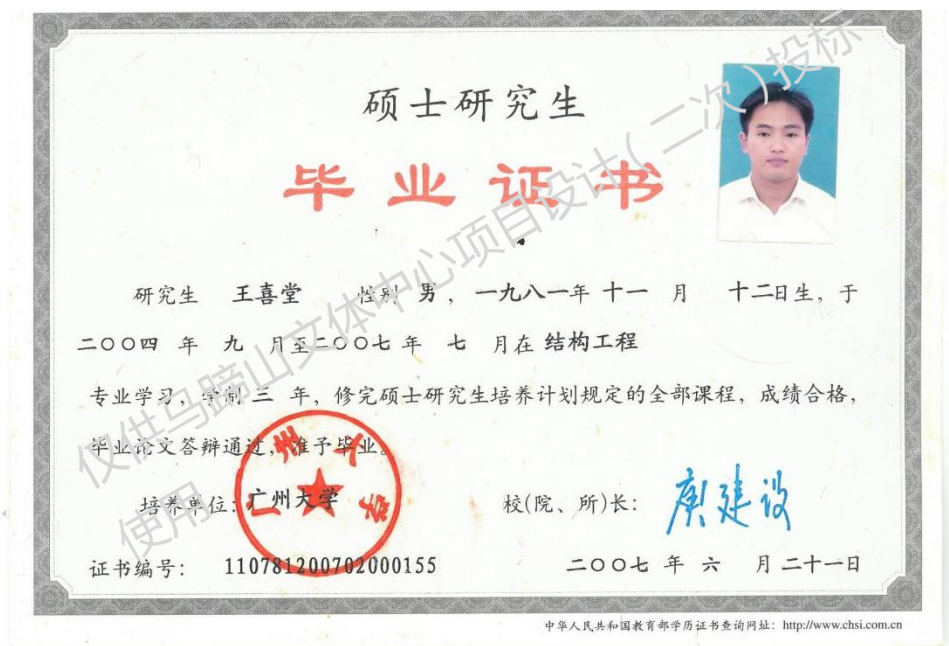 硕士研究生
毕业证书
研究生 王喜堂 性别 男，一九八一年 十一 月 十二日生，于
二〇〇四 年 九 月至二〇〇七年 七 月在 结构工程
专业学习，学制 三 年，修完硕士研究生培养计划规定的全部课程，成绩合格，
毕业论文答辩通过，准予毕业。
培养单位：广州大学
校(院、所)长：庾建设
广州大学
证书编号： 110781200702000155
二〇〇七 年 六 月 二十一日
中华人民共和国教育部学历证书查询网址：http://www.chsi.com.cn
仅供马蹄山文体中心项目设计（二次）投标
使用